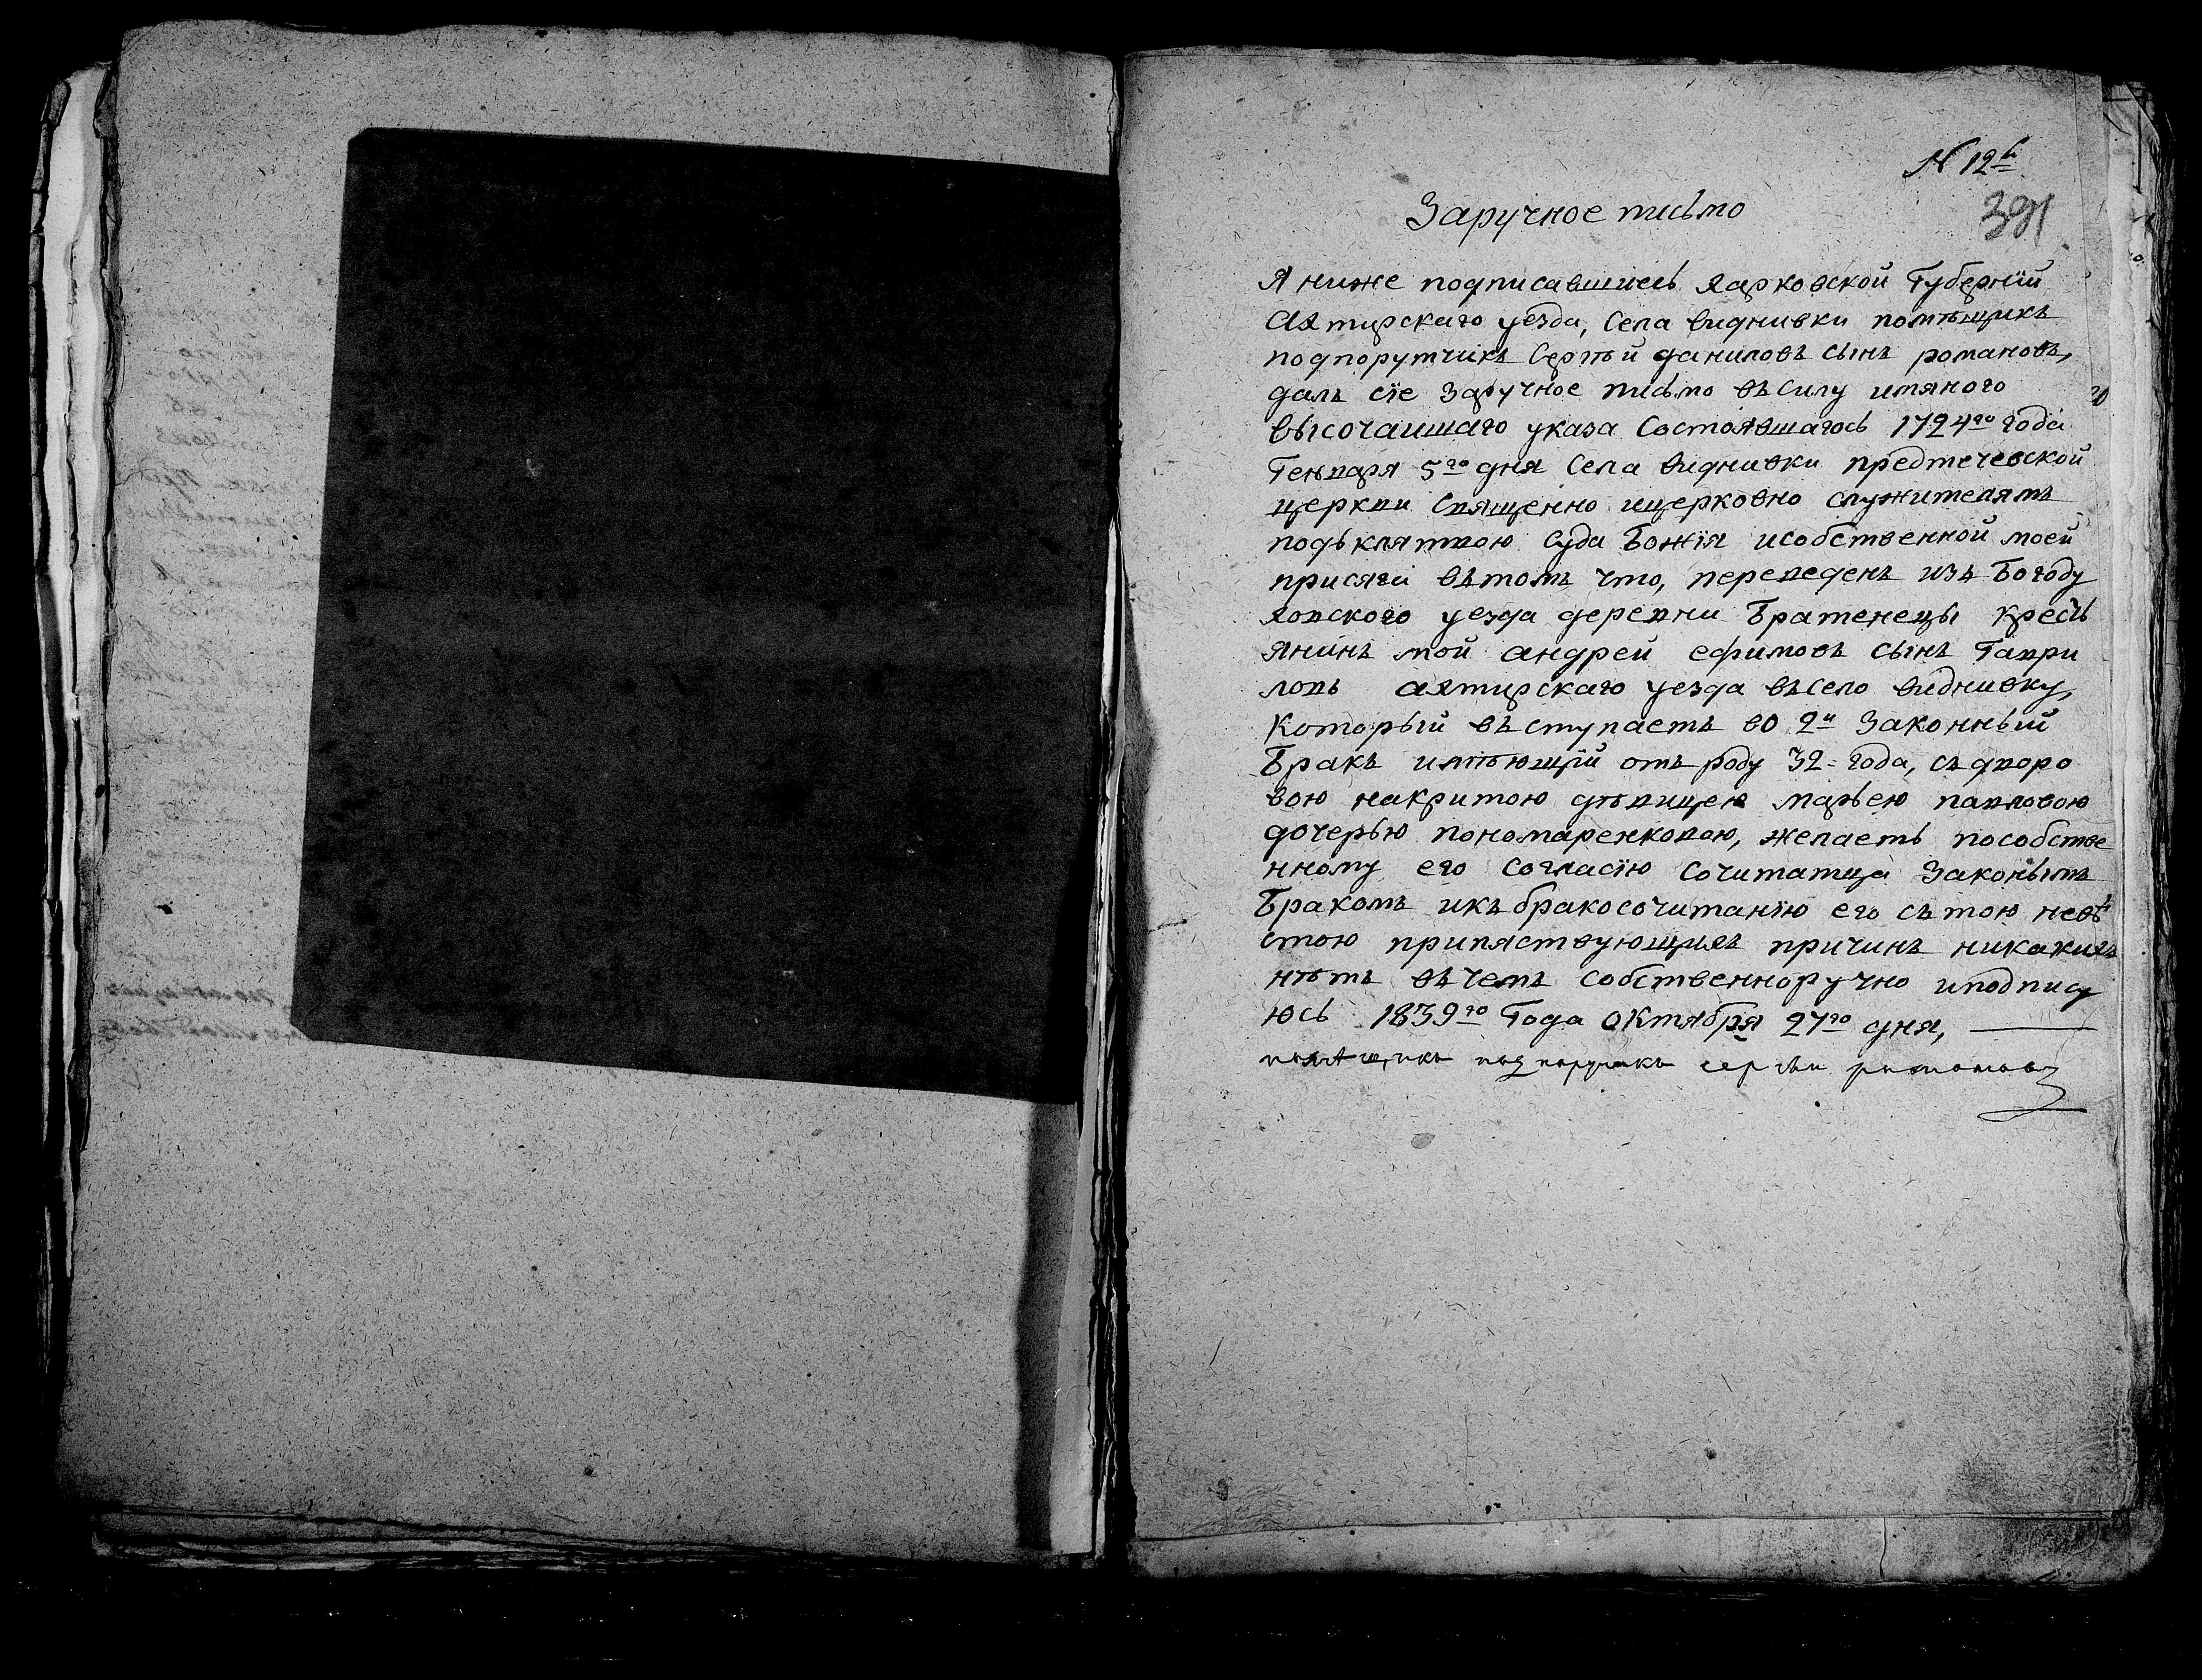 N 12й
391
Заручное письмо
Я ниже подписавшиись Харковской Губерніи
Ахтирскаго уезда, Села Виднивки помѣщикъ
подпорутчикъ Сергѣй даниловъ сынъ романовъ,
далъ сіе Заручное письмо въ Силу имяного
высочаишаго указа Состоявшагось 1724го года
Генваря 5го дня Села Виднивки предтечевской
церкви Священно ицерковно служителямъ
подъклятвою Суда Божія исобственной моей
присяги въ томъ что, переведенъ изъ Богоду
ховского уезда деревни Братенецы Кресть
янинъ мой андрей ефимовъ сынъ Гаври
ловъ ахтирскаго уезда въ село Виднивку,
Который въступаетъ во 2й Законный
Бракъ имѣющій отъ роду 32= года, съ дворо
вою накритою дѣвицею марьею павловою
дочерью пономаренковою, желаетъ пособстве
нному его Согласію Сочитатца Законымъ
Бракомъ икъ бракосочитанію его съ тою невѣ
стою припяствующихъ причинъ никакихъ
нѣтъ въ чемъ Собственноручно иподпису
юсь 1839го Года Октября 27го дня,
помѣщикъ подпоручикъ сергѣи романовъ